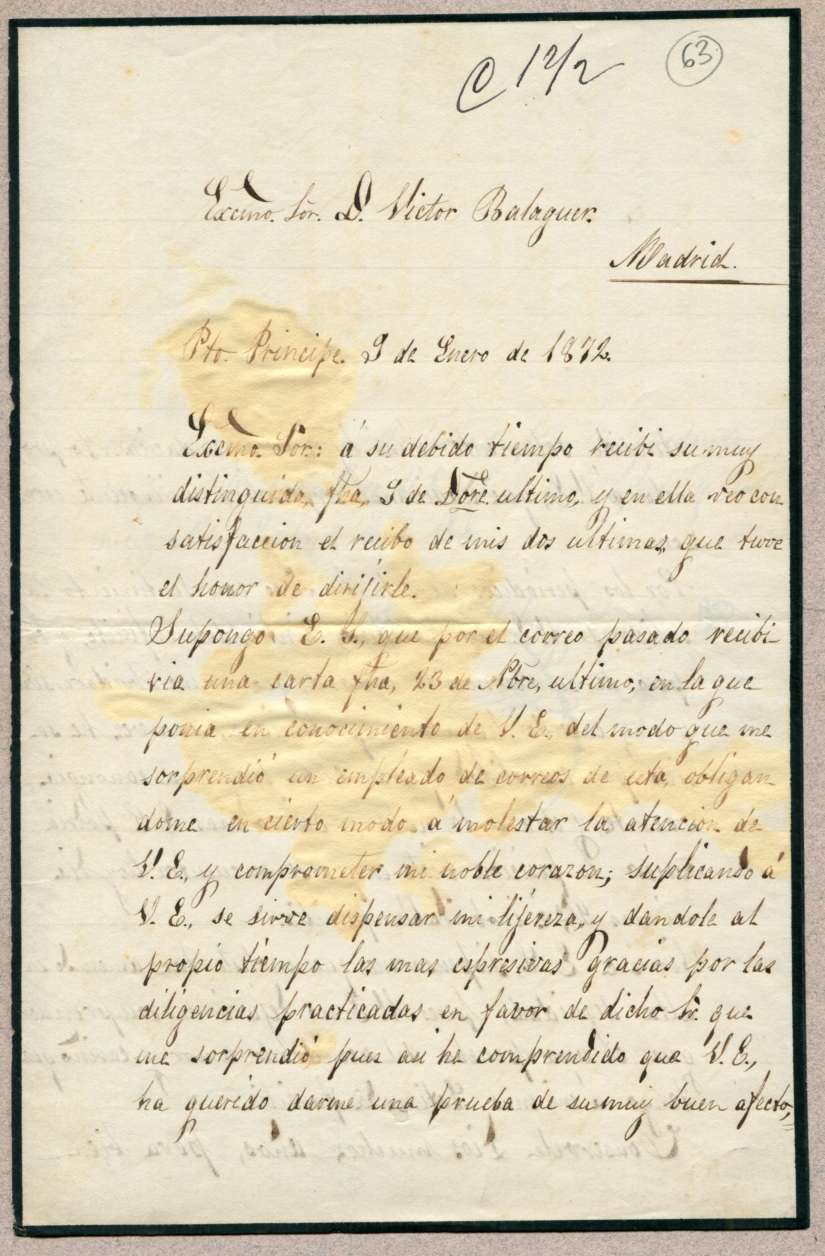 C 12/2
63
Excmo. Sor. D. Victor Balaguer.
Madrid.
Pto. Principe. 9 de Enero de 1872.
Excmo. Sor.: á su debido tiempo recibi su muy
distinguida, fha, 9 de Dbre. ultimo, y en ella veo con
satisfaccion el recibo de mis dos ultimas, que tuve
el honor de dirijirle.
Supongo E. S., que por el correo pasado recibi
ria una carta fha, 23 de Nbre, ultimo, en la que
ponia en conocimiento de V. E., del modo que me
sorprendió un empleado de correos de esta, obligan
dome en cierto modo á molestar la atencion de
V. E., y comprometer mi noble corazon; suplicando á
V. E., se sirva dispensar mi lijereza, y dandole al
propio tiempo las mas espresivas gracias por las
diligencias practicadas en favor de dicho Sr. que
me sorprendió, pues asi he comprendido que V. E.,
ha querido darme una prueba de su muy buen afecto,,